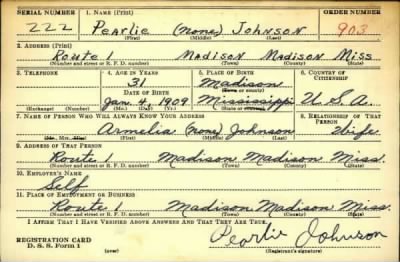 SERIAL NUMBER 1. NAME (Print) ORDER NUMBER
222 Pearlie (None) Johnson 903
(First) (Middle) (Last)
2. ADDRESS (Print)
Route 1 Madison Madison Miss
(Number and street or R. F. D. number) (Town) (County) (State)
3. TELEPHONE 4. AGE IN YEARS 5. PLACE OF BIRTH 6. COUNTRY OF CITIZENSHIP
31 Madison
DATE OF BIRTH (Town or county)
Jan. 4, 1909 Mississippi U.S.A.
(Exchange) (Number) (Mo.) (Day) (Yr.) (State or country)
7. NAME OF PERSON WHO WILL ALWAYS KNOW YOUR ADDRESS 8. RELATIONSHIP OF THAT PERSON
Armelia (None) Johnson Wife
(Mr., Mrs., Miss) (First) (Middle) (Last)
9. ADDRESS OF THAT PERSON
Route 1 Madison Madison Miss.
(Number and street or R. F. D. number) (Town) (County) (State)
10. EMPLOYER'S NAME
Self
11. PLACE OF EMPLOYMENT OR BUSINESS
Route 1 Madison Madison Miss.
(Number and street or R. F. D. number) (Town) (County) (State)
I AFFIRM THAT I HAVE VERIFIED ABOVE ANSWERS AND THAT THEY ARE TRUE.
REGISTRATION CARD Pearlie Johnson
D. S. S. Form 1 (over) (Registrant's signature)